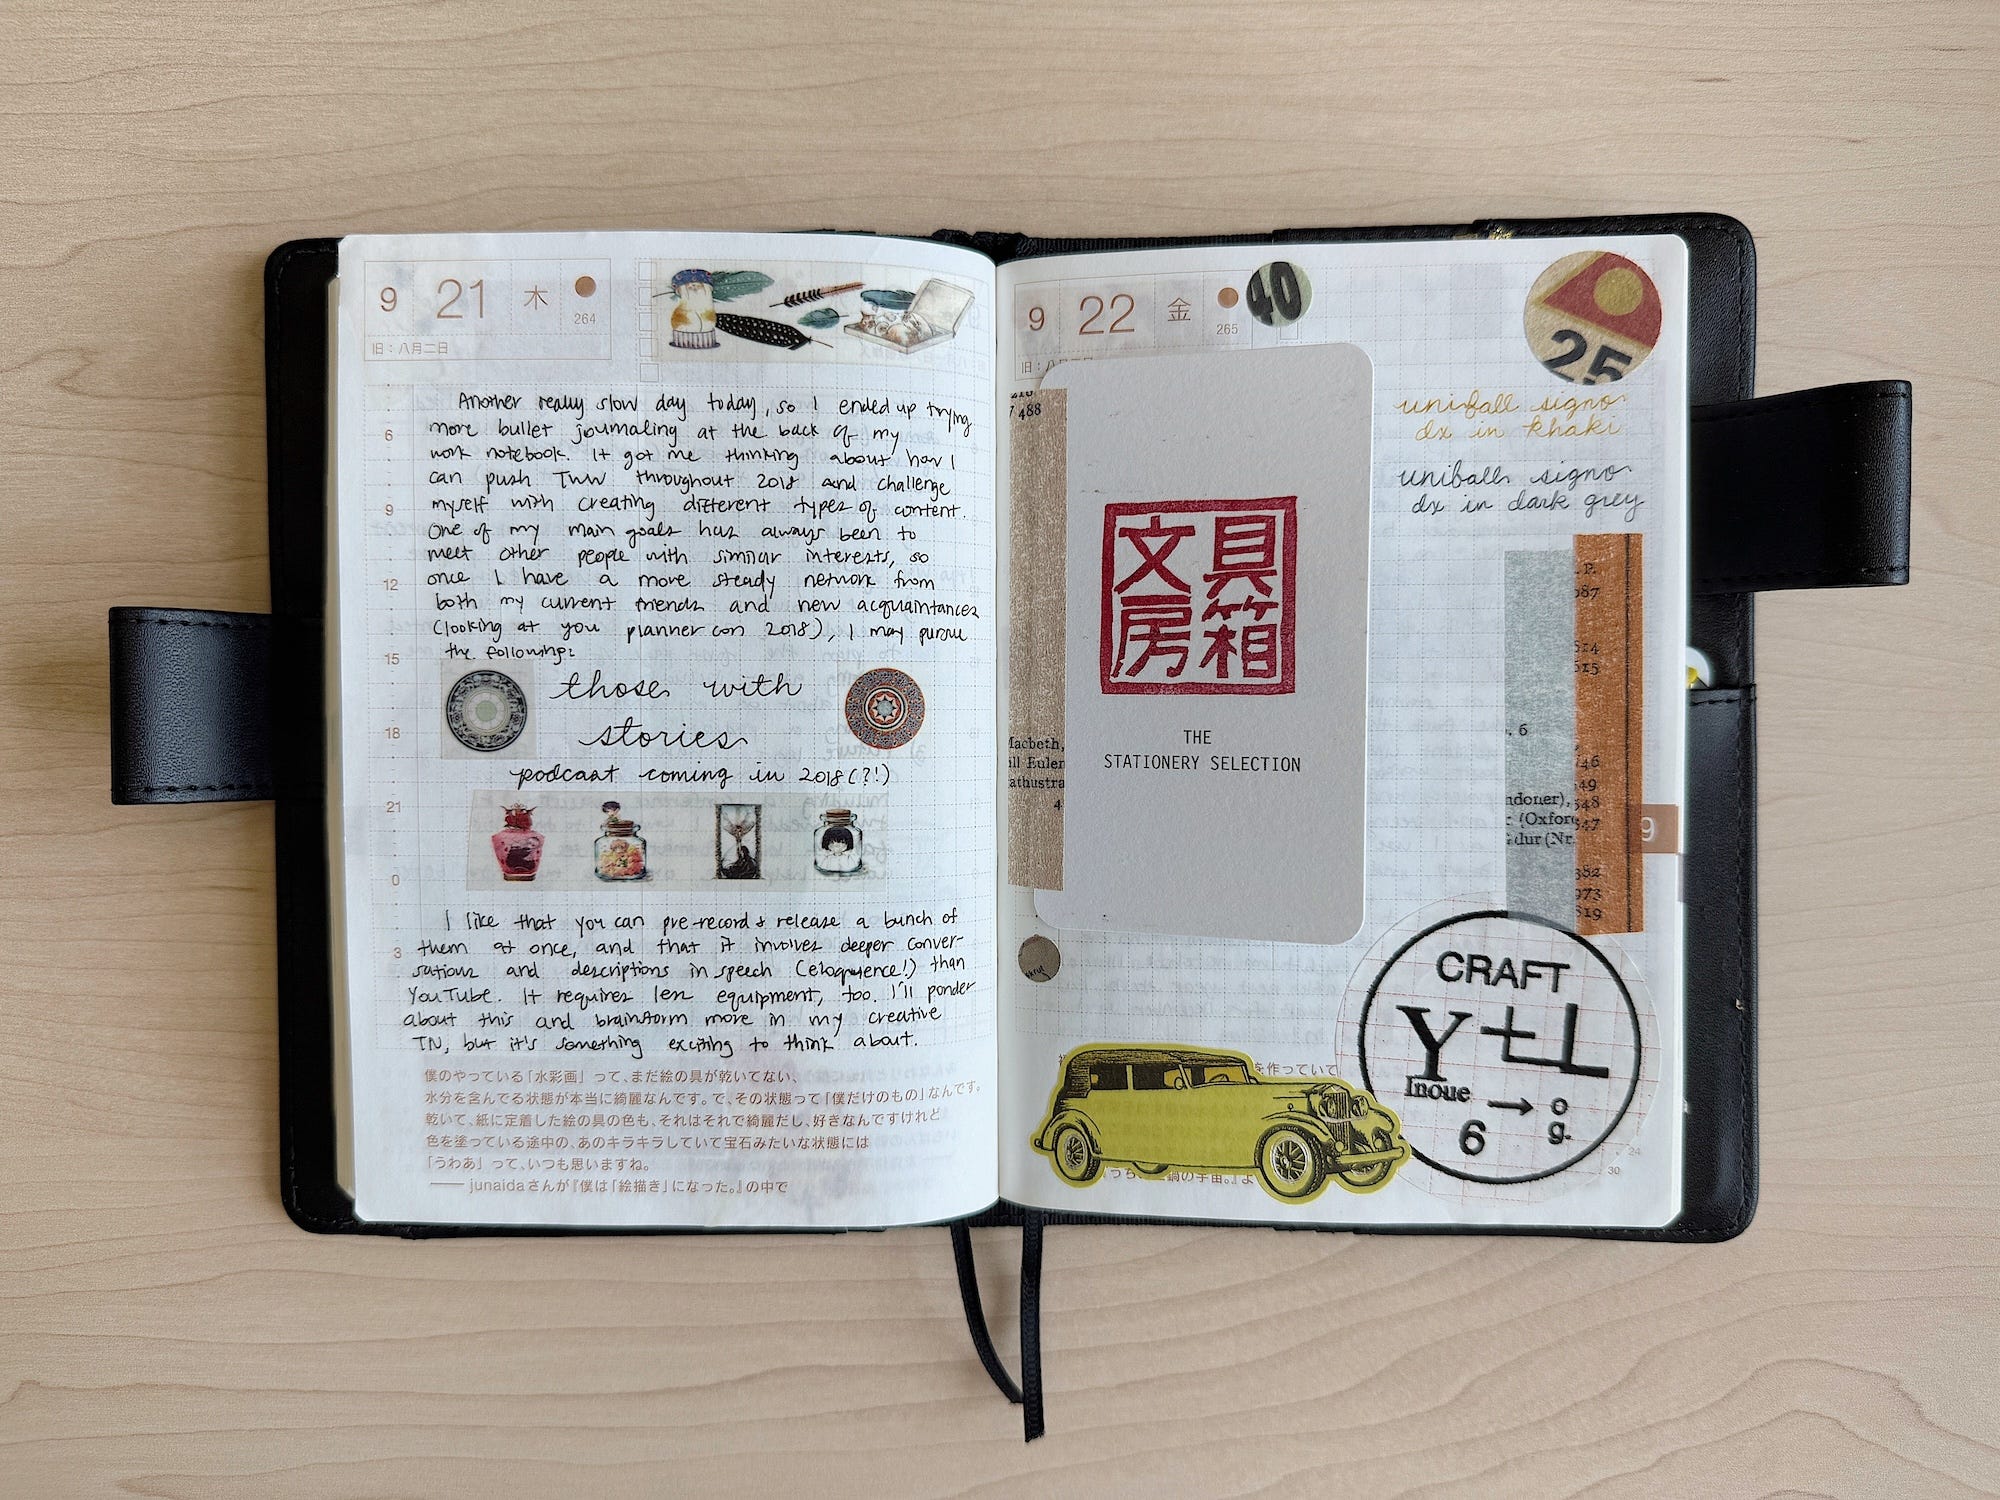 9 21 木 264
旧：八月二日
Another really slow day today, so I ended up trying
more bullet journaling at the back of my
work notebook. It got me thinking about how I
can push TWW throughout 2018 and challenge
myself with creating different types of content.
One of my main goals has always been to
meet other people with similar interests, so
once I have a more steady network from
both my current friends and new acquaintances
(looking at you planner con 2018), I may pursue
the following:
those with
stories
podcast coming in 2018(?!)
I like that you can pre-record & release a bunch of
them at once, and that it involves deeper conver-
sations and descriptions in speech (eloquence!) than
YouTube. It requires less equipment, too. I'll ponder
about this and brainstorm more in my creative
TN, but it's something exciting to think about.
6
9
12
15
18
21
0
3
僕のやっている「水彩画」って、まだ絵の具が乾いてない、
水分を含んでる状態が本当に綺麗なんです。で、その状態って「僕だけのもの」なんです。
乾いて、紙に定着した絵の具の色も、それはそれで綺麗だし、好きなんですけれど
色を塗っている途中の、あのキラキラしていて宝石みたいな状態には
「うわあ」って、いつも思いますね。
── junaidaさんが『僕は「絵描き」になった。』の中で
9 22 金 265
旧：八
40
25
uniball signo
dx in khaki
uniball signo
dx in dark grey
7 488
文具
房箱
THE
STATIONERY SELECTION
Macbeth,
ill Eulen
athustra
4
P.
587
614
615
6
746
49
548
547
ndoner),
(Oxford
dur (Nr.
382
973
519
9
CRAFT
Y±L
Inoue → o
6 g.
を作っていて
うち、 鍋の宇宙。』よ
24
30